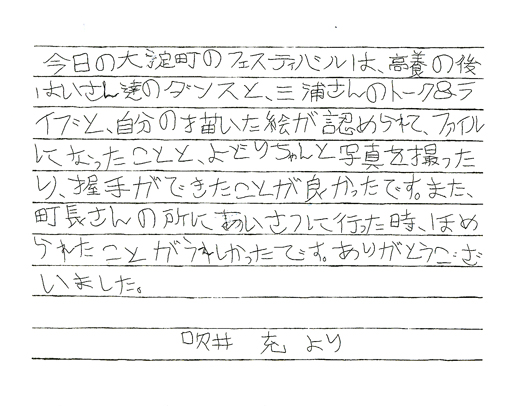 今日の大淀町のフェスティバルは、高養の後
はいさん達のダンスと、三浦さんのトーク&ラ
イブと、自分の描いた絵が認められて、ファイル
になったことと、よどりちゃんと写真を撮った
り、握手ができたことが良かったです。また、
町長さんの所にあいさつに行った時、ほめ
られたことがうれしかったです。ありがとうござ
いました。
吹井 充 より